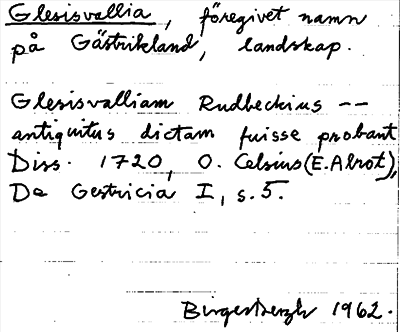 Glesisvallia, föregivet namn
på Gästrikland, landskap.
Glesisvalliam Rudbeckius --
antiquitus dictam fuisse probant
Diss. 1720, O. Celsius (E. Alrot),
De Gestricia I, s. 5.
1962.